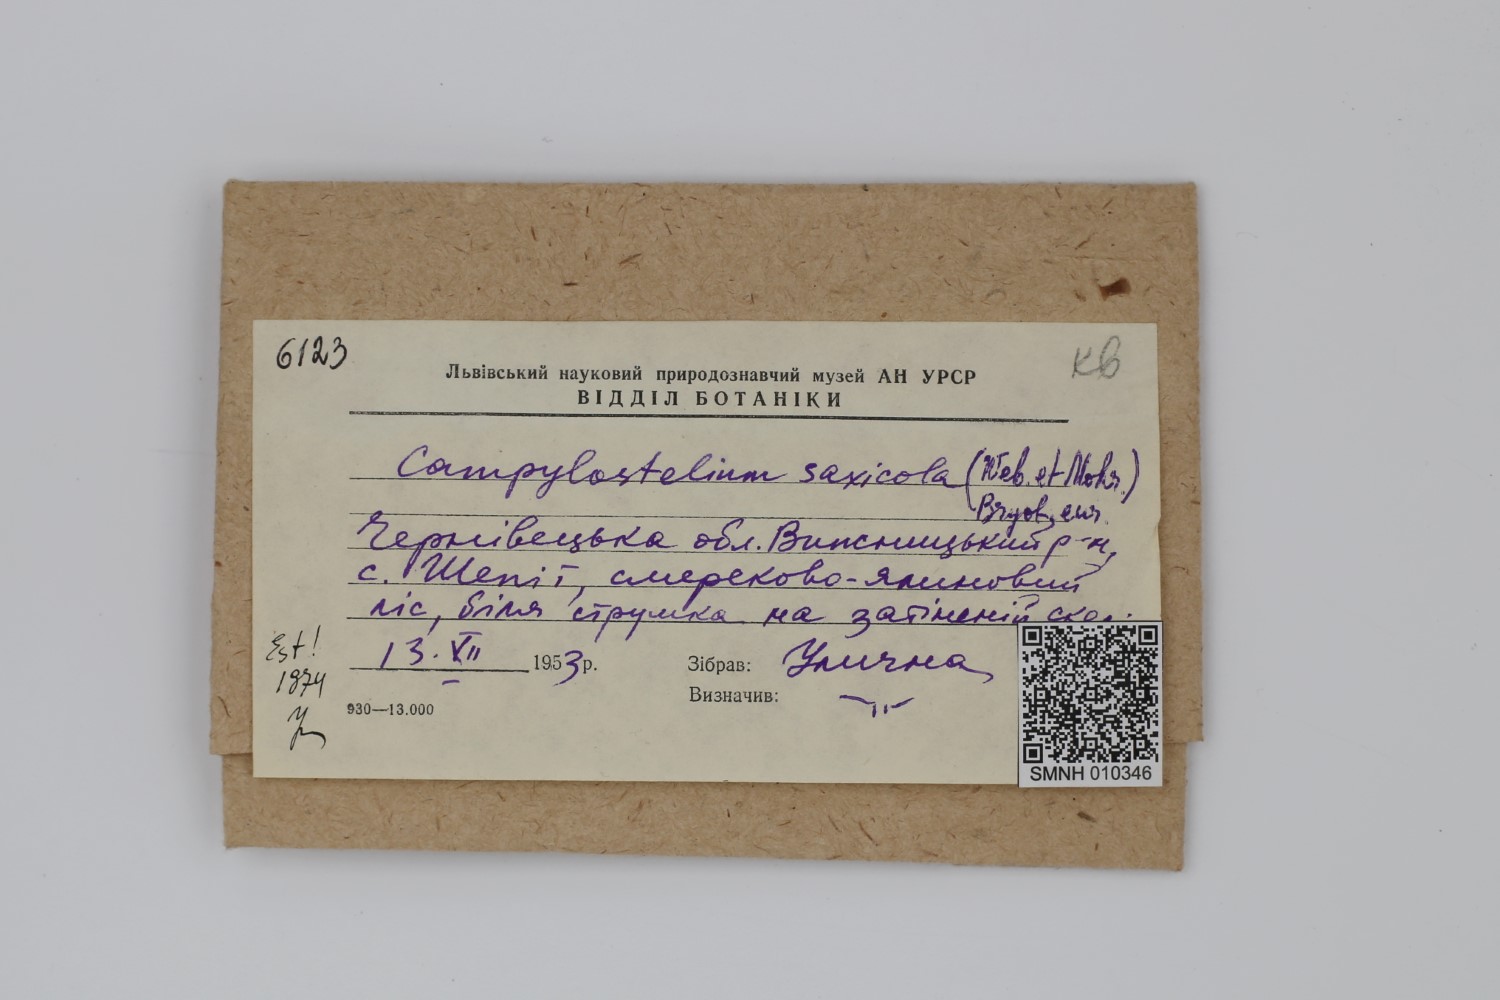 6123
кв
Львівський науковий природознавчий музей АН УРСР
ВІДДІЛ БОТАНІКИ
Campylostelium saxicola (Web. et Mohr.)
Bryol. eur.
Чернівецька обл. Вижницький р-н,
с. Шепіт, смереково-ялиновий
ліс, біля струмка на затіненій
13.VII 1953 р. Зібрав: Улична
Est!
1974
930—13.000 Визначив: —"—
SMNH 010346